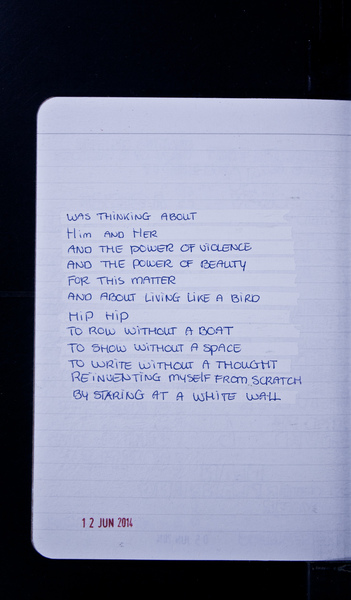 WAS THINKING ABOUT
Him AND HER
AND THE POWER OF VIOLENCE
AND THE POWER OF BEAUTY
FOR THIS MATTER
AND ABOUT LIVING LIKE A BIRD
HIP HIP
TO ROW WITHOUT A BOAT
TO SHOW WITHOUT A SPACE
TO WRITE WITHOUT A THOUGHT
REINVENTING MYSELF FROM SCRATCH
BY STARING AT A WHITE WALL
12 JUN 2014